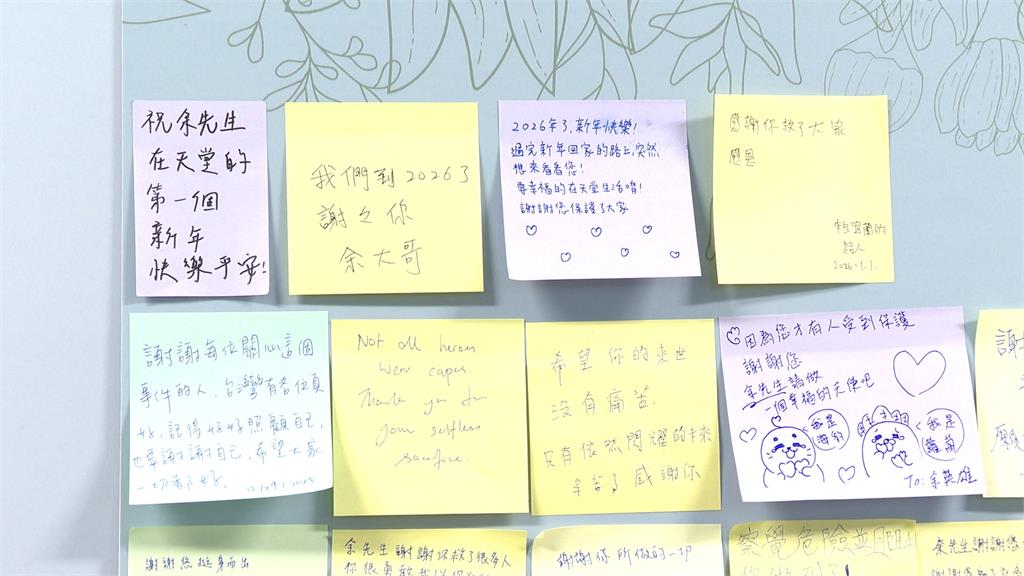 祝余先生
在天堂的
第一個
新年
快樂平安!
我們到2026了
謝謝你
余大哥
2026年了,新年快樂!
過完新年回家的路上,突然
想來看看您!
要幸福的在天堂生活唷!
謝謝您保護了大家
感謝你救了大家
感恩
來自宜蘭的
路人
2026.1.1.
謝謝每位關心這個
事件的人,台灣有各位真
好,記得好好照顧自己,
也要謝謝自己,希望大家
一切都好.
12/29/2025
Not all heroes
wear capes.
Thank you for
your selfless
sacrifice.
希望你的來世
沒有痛苦.
只有依然閃耀的未來
辛苦了感謝你
因為您才有人受到保護
謝謝您
余先生請做
一個幸福的天使吧
我是
海豹
我是
蘿蔔
To: 余英雄
謝謝您挺身而出
余先生謝謝你救了很多人
謝謝你所做的一切
察覺危險並阻止
余先生謝謝您